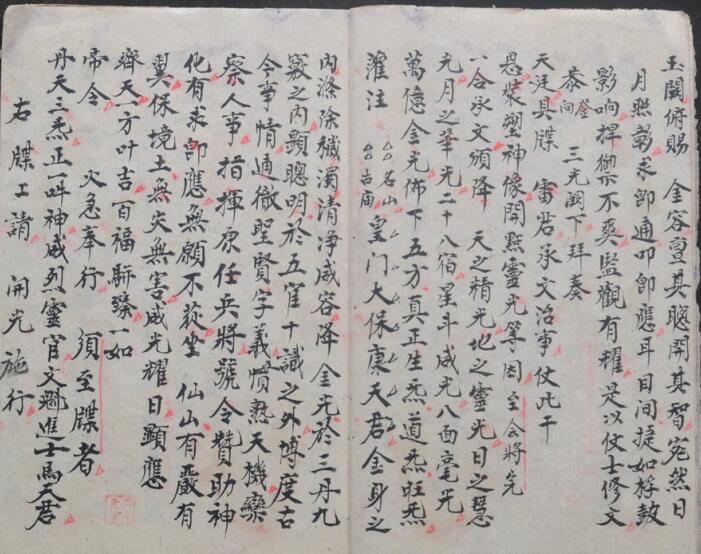 玉闕俯賜　金容亶其聰開其智宛然日
月照彰求卽通叩卽應耳目間捷如桴鼓
影响捍禦不爽監觀有耀是以仗士修文
恭向登　三光闕下拜奏
天廷具牒　雷若承文洽事仗此干
恩裝塑神像開點靈光等因至会將先
一合承文頒降　天之精光地之靈光日之慧
光月之華光二十八宿星斗咸光八面毫光
萬億金光佈下五方真正生炁道炁旺炁
灌注　厶厶名山厶厶古庙　皇門大保康天君金身之
內滌除穢濁清淨威容降金光於三丹九
竅之內顯聰明於五官十識之外博度古
今事情通徹聖賢字義慣熟天機欒
察人事指揮原任兵將號令贊助神
化有求卽應無願不荻坐　仙山有嚴有
翼保境土無灾無害威光耀日顯應
齊天一方叶吉百福駢臻一如
帝令　火急奉行　須至牒者
丹天三炁正一吽神威烈靈官文魁進士馬天君
右牒上請　開光施行